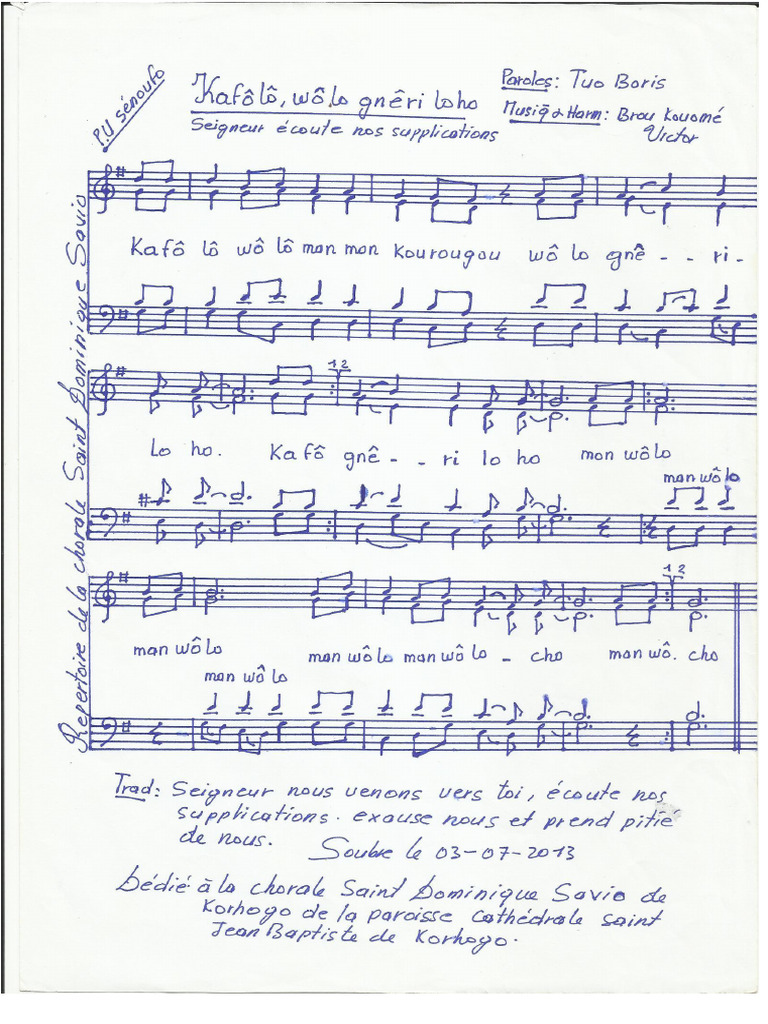 P.U sénoufo
Kafôlô, wô lo gnêri loho
Seigneur écoute nos supplications
Paroles: Tuo Boris
Musiq & Harm: Brou Kouamé
Victor
Repertoire de la chorale Saint Dominique Savio
Kafô lô wô lô man man kourougou wô lo gnê - - ri -
1 2
Lo ho. Kafô gnê - - ri lo ho man wô lo
man wô lo
1 2
man wô lo man wô lo man wô lo - cho man wô. cho
man wô lo
Trad: Seigneur nous venons vers toi, écoute nos
supplications. exause nous et prend pitié
de nous. Soubre le 03-07-2013
Dédié à la chorale Saint Dominique Savio de
Korhogo de la paroisse cathédrale saint
Jean Baptiste de Korhogo.